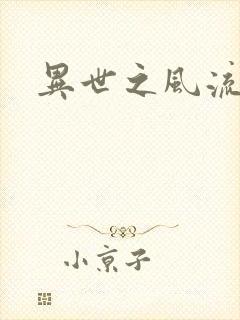 異世之風流
小京子